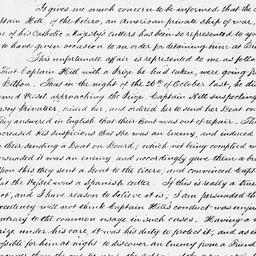 It gives me much concern to be informed that the c
tain Hill, of the Cicero, an American private ship of war,
one of his Catholic Majesty's Cutters has been so represented to yo
to have given occasion to an order for detaining him at Bil
This unfortunate affair is represented to me as follow
That Captain Hill with a Prize he had taken, were going f
Bilboa. That in the night of the 26th of October last, he di
ved a Vessel approaching the Prize. Captain Hill suspecting
ersey Privateer, hailed her, and ordered her to send her Boat on
They answered in English that their Boat was out of repair. Th
creased his suspicions that she was an enemy, and induced
n their sending a Boat on Board; which not being complied w
ersuaded it was an enemy and accordingly gave them a br
Upon this they sent a Boat to the Cicero; and convinced Capt
at the Vessel was a Spanish Cutter. If this is really a true
nt, and I have reason to believe it is; I am persuaded th
xcellency will not think Captain Hill's conduct was unju
ntrary to the common usage in such cases. Having a
rize under his care it was his duty to protect it; and as i
possible for him at night to discover an Enemy from a Friend